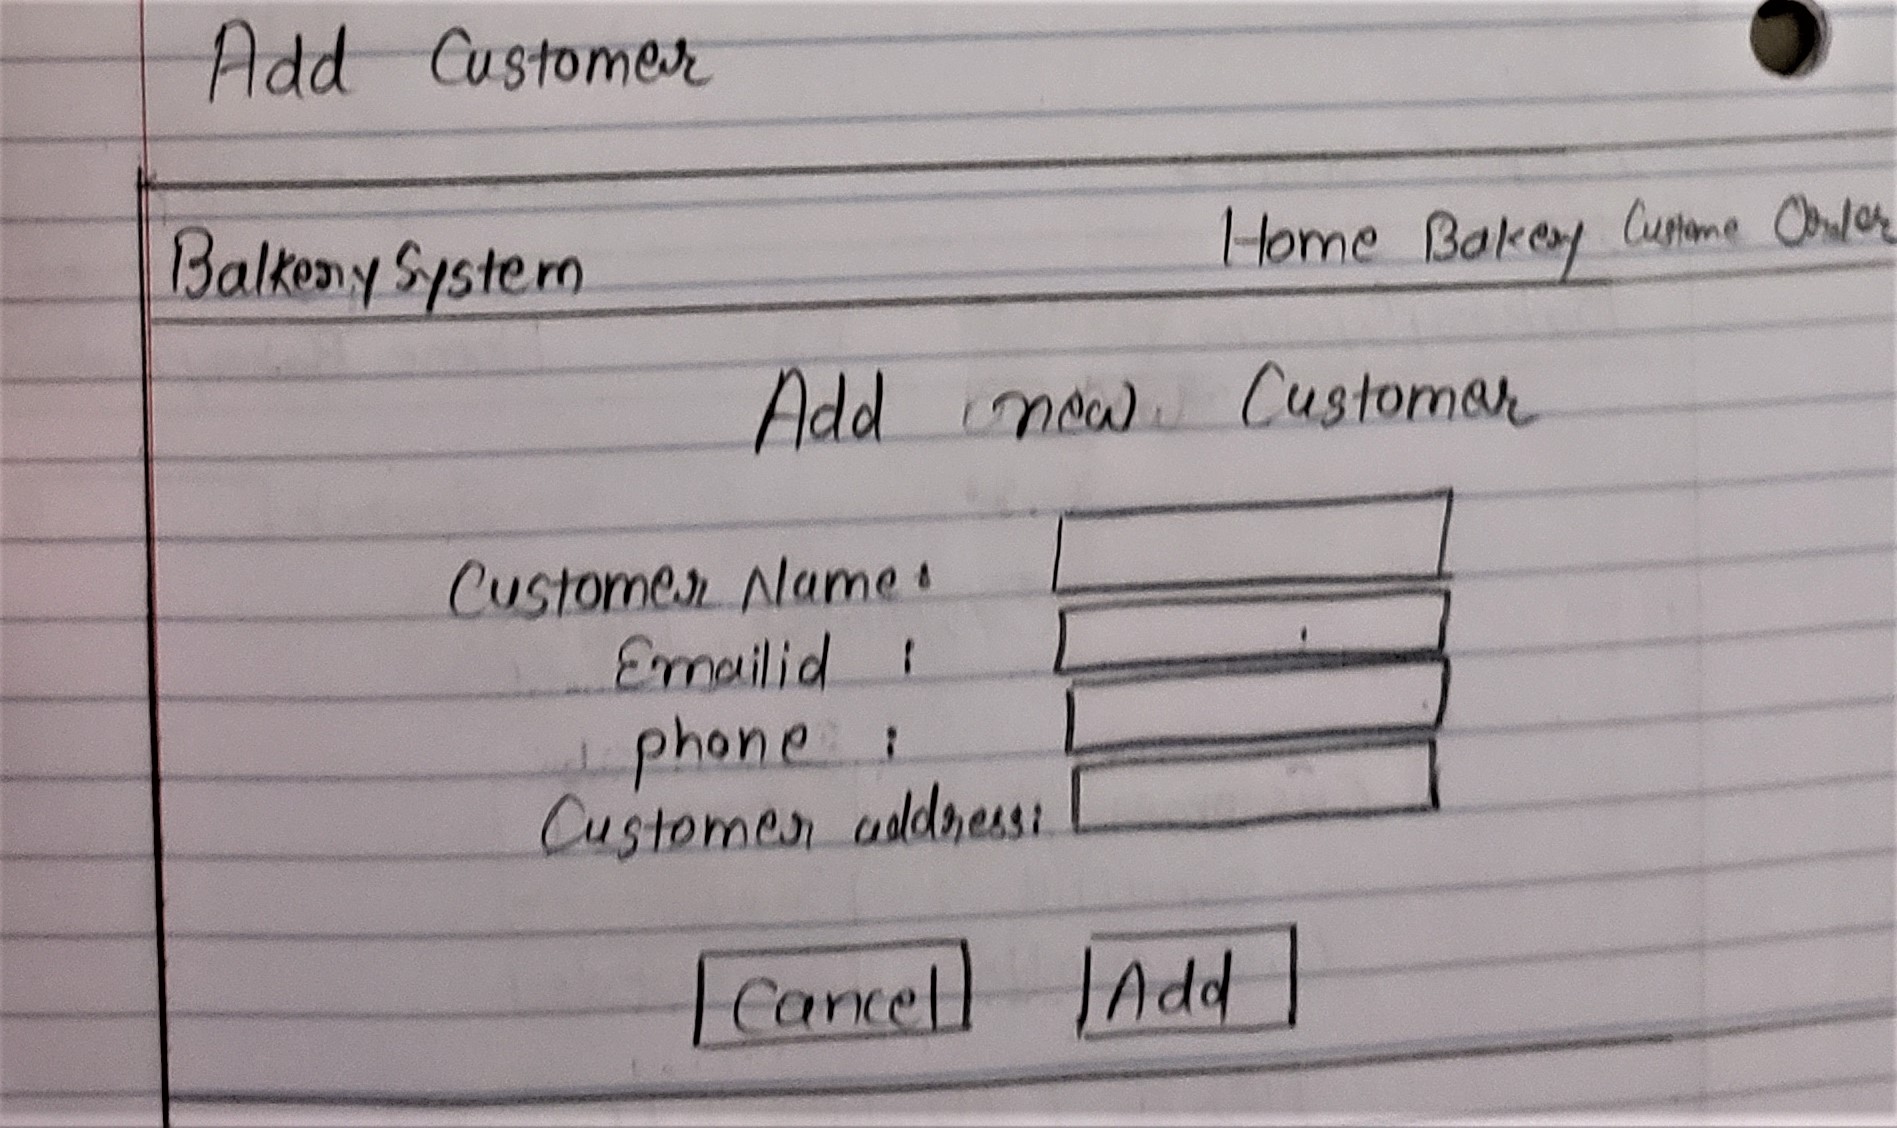 Add Customer
Balkery System Home Bakery Custome Order
Add new Customer
Customer Name:
Emailid :
phone :
Customer address:
Cancel Add